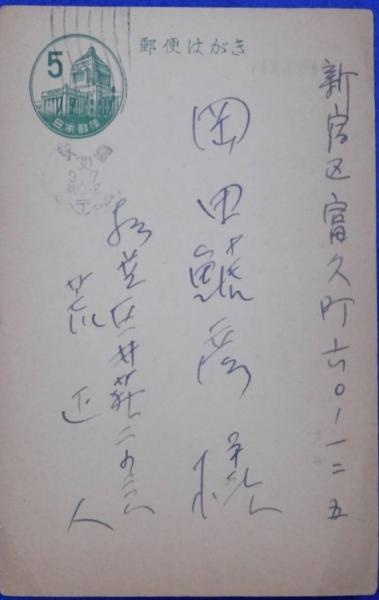 郵便はがき
5
日本郵便
30
9.7
新宿区富久町六〇ー一二五
岡田鯱彦様
杉並区井荻二ノ
荒正人